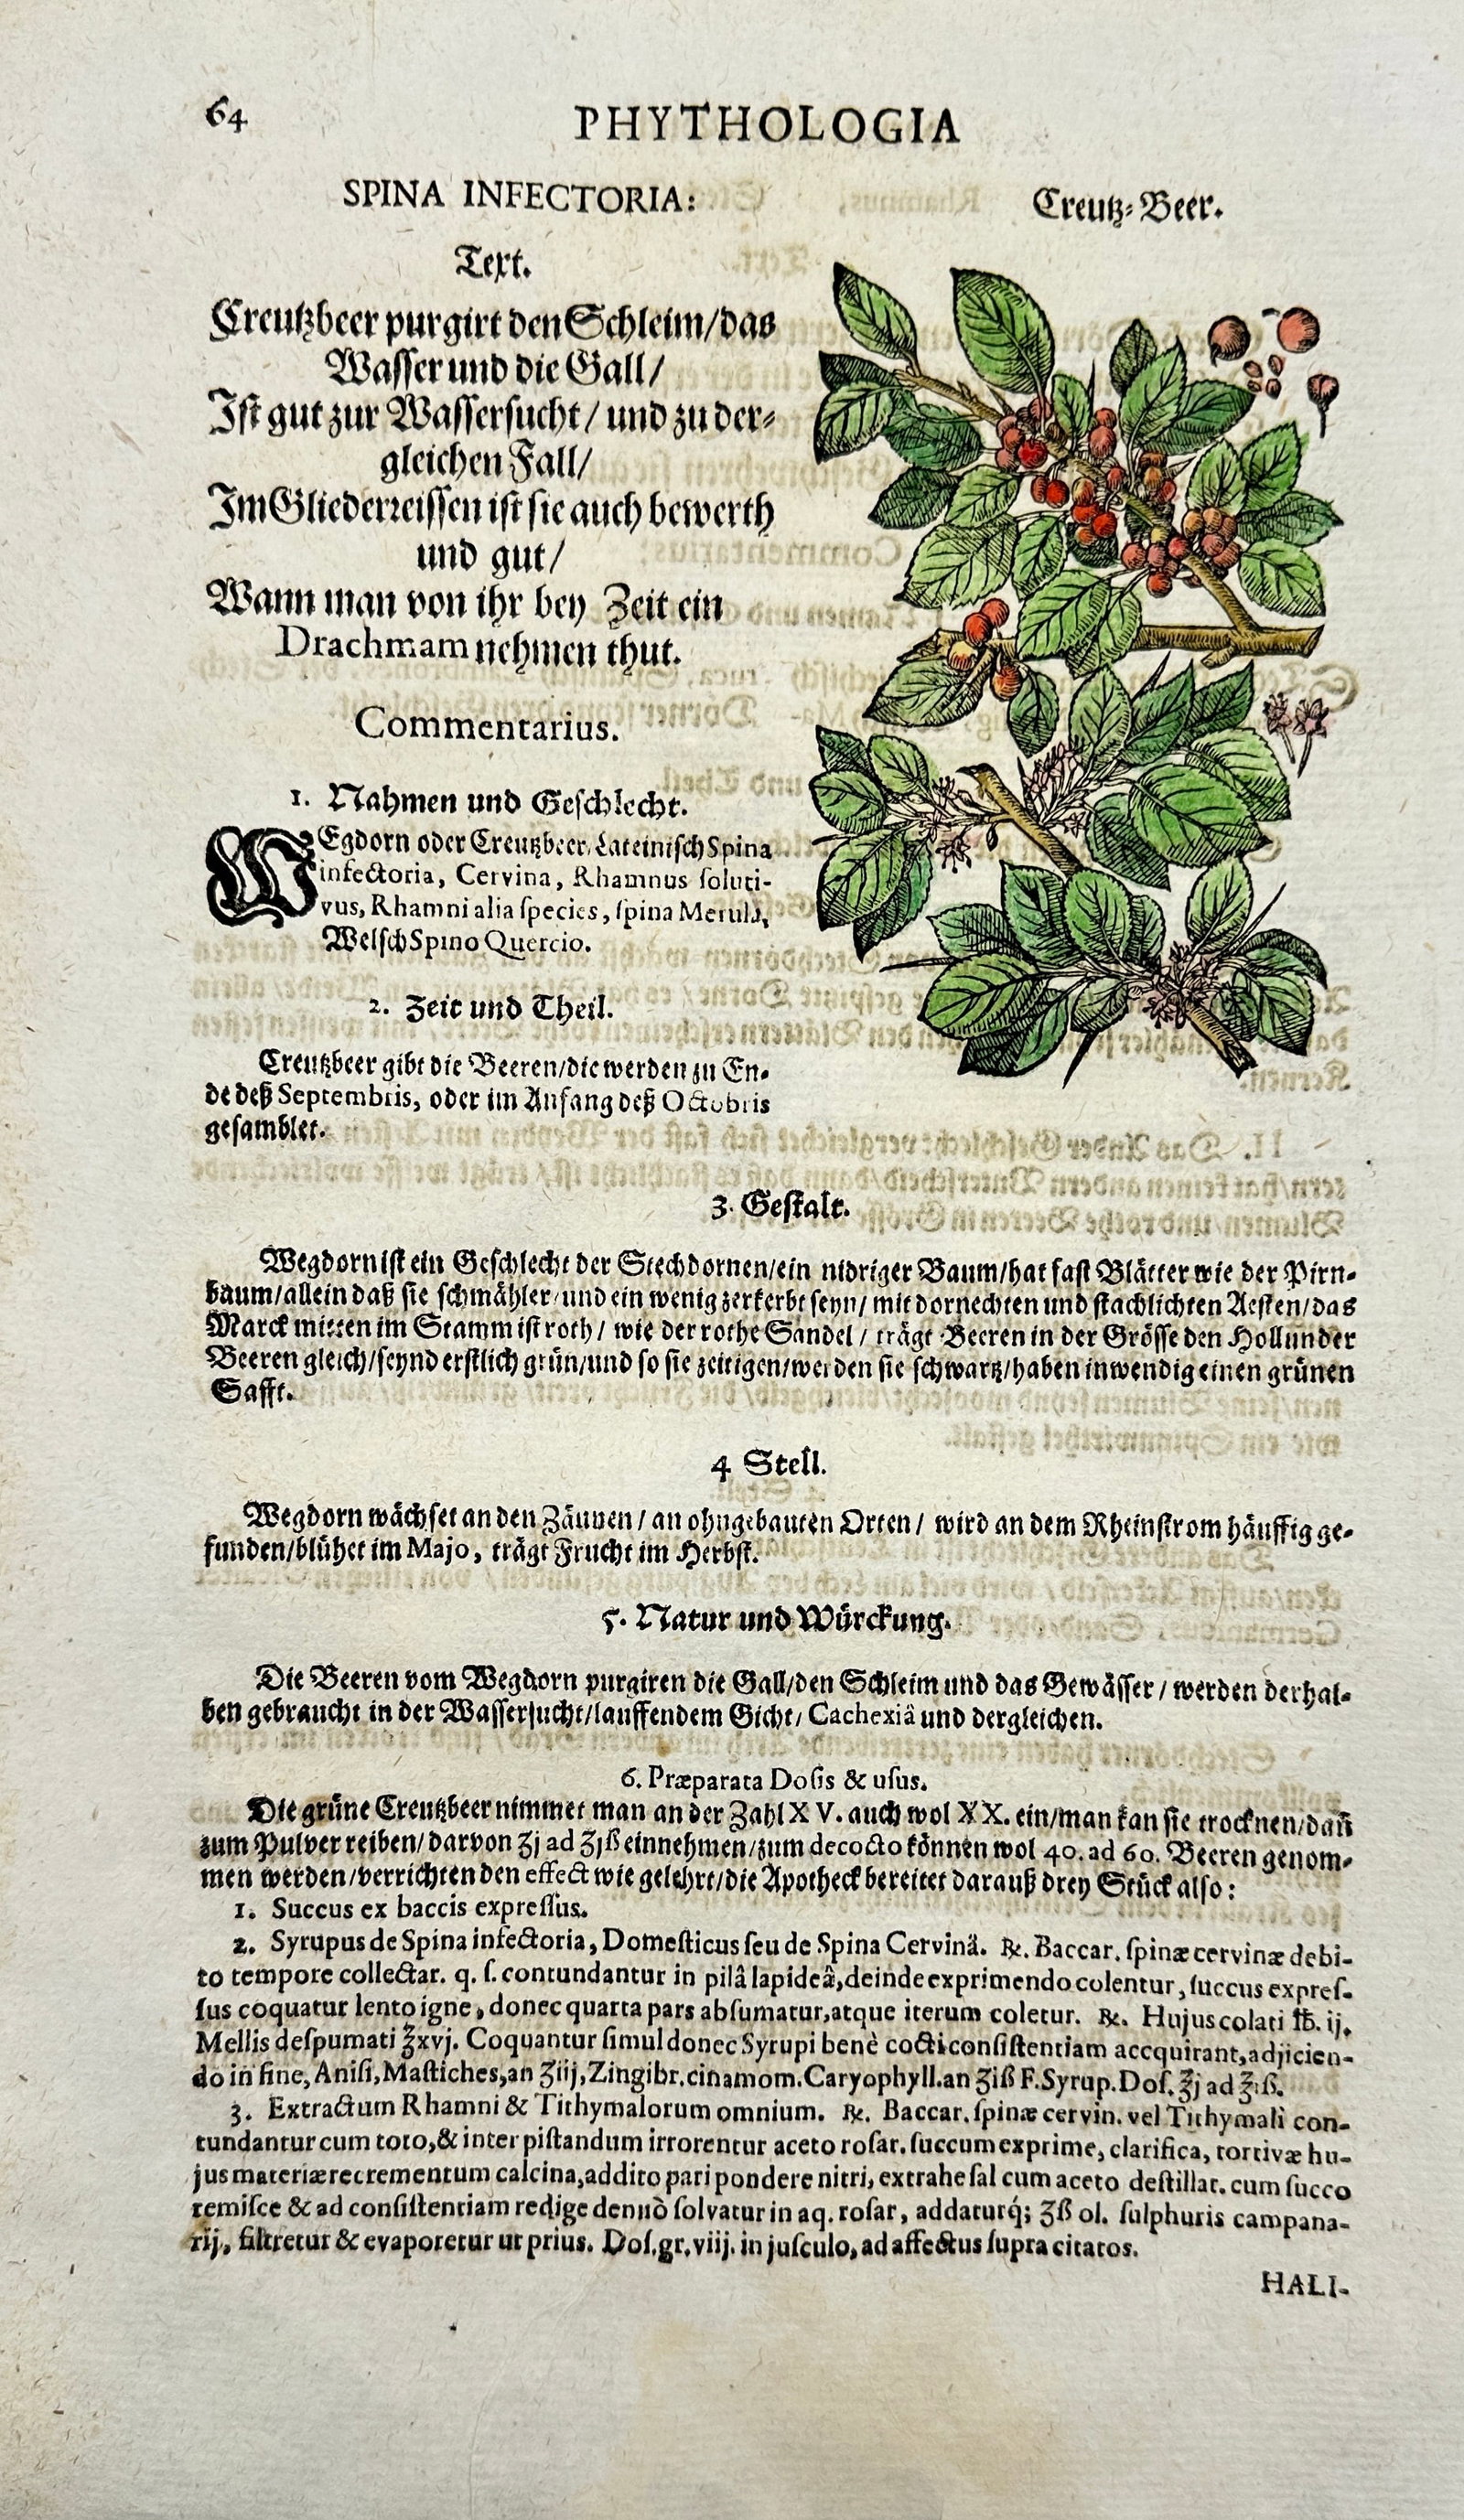 64
PHYTHOLOGIA
SPINA INFECTORIA:
Creutz-Beer.
Text.
Creutzbeer purgirt den Schleim/das
Wasser und die Gall/
Ist gut zur Wassersucht/ und zu der-
gleichen Fall/
Im Gliederreissen ist sie auch bewerth
und gut/
Wann man von ihr bey Zeit ein
Drachmam nehmen thut.
Commentarius.
1. Nahmen und Geschlecht.
WEgdorn oder Creutzbeer, Lateinisch Spina
infectoria, Cervina, Rhamnus soluti-
vus, Rhamni alia species, spina Merula,
Welsch Spino Quercio.
2. Zeit und Theil.
Creutzbeer gibt die Beeren/die werden zu En-
de deß Septembris, oder im Anfang deß Octobris
gesamblet.
3. Gestalt.
Wegdorn ist ein Geschlecht der Stechdornen/ein nidriger Baum/hat fast Blätter wie der Pirn-
baum/allein daß sie schmähler/und ein wenig zerkerbt seyn/ mit dornechten und stachlichten Aesten/das
Marck mitten im Stamm ist roth/ wie der rothe Sandel/ trägt Beeren in der Grösse den Hollunder
Beeren gleich/seynd erstlich grün/und so sie zeitigen/werden sie schwartz/haben inwendig einen grünen
Safft.
4 Stell.
Wegdorn wächset an den Zäunen/ an ohngebauten Orten/ wird an dem Rheinstrom häuffig ge-
funden/blühet im Majo, trägt Frucht im Herbst.
5. Natur und Würckung.
Die Beeren vom Wegdorn purgiren die Gall/den Schleim und das Gewässer/ werden derhal-
ben gebraucht in der Wassersucht/lauffendem Gicht/ Cachexiâ und dergleichen.
6. Præparata Dosis & usus.
Die grüne Creutzbeer nimmet man an der Zahl XV. auch wol XX. ein/man kan sie trocknen/dañ
zum Pulver reiben/ darvon ʒj ad ʒjß einnehmen/zum decocto können wol 40. ad 60. Beeren genom-
men werden/verrichten den effect wie gelehrt/die Apotheck bereitet darauß drey Stück also:
1. Succus ex baccis expressus.
2. Syrupus de Spina infectoria, Domesticus seu de Spina Cervinâ. ℞. Baccar. spinæ cervinæ debi-
to tempore collectar. q. s. contundantur in pilâ lapideâ, deinde exprimendo colentur, succus expres-
sus coquatur lento igne, donec quarta pars absumatur, atque iterum coletur. ℞. Hujus colati ℔. ij.
Mellis despumati ℥xvj. Coquantur simul donec Syrupi benè cocti consistentiam accquirant, adjicien-
do in fine, Anisi, Mastiches, an ʒiij, Zingibr. cinamom. Caryophyll. an ʒiß F. Syrup. Dos. ℥j ad ℥iß.
3. Extractum Rhamni & Tithymalorum omnium. ℞. Baccar. spinæ cervin. vel Tithymali con-
tundantur cum toto, & inter pistandum irrorentur aceto rosar. succum exprime, clarifica, tortivæ hu-
jus materiæ recrementum calcina, addito pari pondere nitri, extrahe sal cum aceto destillat. cum succo
remisce & ad consistentiam redige denuò solvatur in aq. rosar, addaturq́; ʒß ol. sulphuris campana-
rij, filtretur & evaporetur ut prius. Dos. gr. viij. in jusculo, ad affectus supra citatos.
HALI-